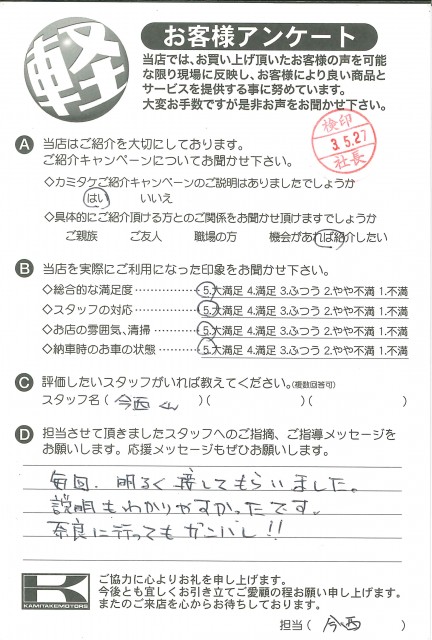 軽
お客様アンケート
当店では、お買い上げ頂いたお客様の声を可能
な限り現場に反映し、お客様により良い商品と
サービスを提供する事に努めています。
大変お手数ですが是非お声をお聞かせ下さい。
検印
3.5.27
社長
A 当店はご紹介を大切にしております。
ご紹介キャンペーンについてお聞かせ下さい。
◇カミタケご紹介キャンペーンのご説明はありましたでしょうか
はい いいえ
◇具体的にご紹介頂ける方とのご関係をお聞かせ頂けますでしょうか
ご親族 ご友人 職場の方 機会があれば紹介したい
B 当店を実際にご利用になった印象をお聞かせ下さい。
◇総合的な満足度 ………… 5.大満足 4.満足 3.ふつう 2.やや不満 1.不満
◇スタッフの対応 ………… 5.大満足 4.満足 3.ふつう 2.やや不満 1.不満
◇お店の雰囲気、清掃 ……… 5.大満足 4.満足 3.ふつう 2.やや不満 1.不満
◇納車時のお車の状態 ……… 5.大満足 4.満足 3.ふつう 2.やや不満 1.不満
C 評価したいスタッフがいれば教えてください。(複数回答可)
スタッフ名( 今西くん )( )( )
D 担当させて頂きましたスタッフへのご指摘、ご指導メッセージを
お願いします。応援メッセージもぜひお願いします。
毎回、明るく接してもらいました。
説明もわかりやすかったです。
奈良に行ってもガンバレ!!
K
KAMITAKEMOTORS
ご協力に心よりお礼を申し上げます。
今後とも宜しくお引き立てご愛顧の程お願い申し上げます。
またのご来店を心からお待ちしております。
担当( 今西 )